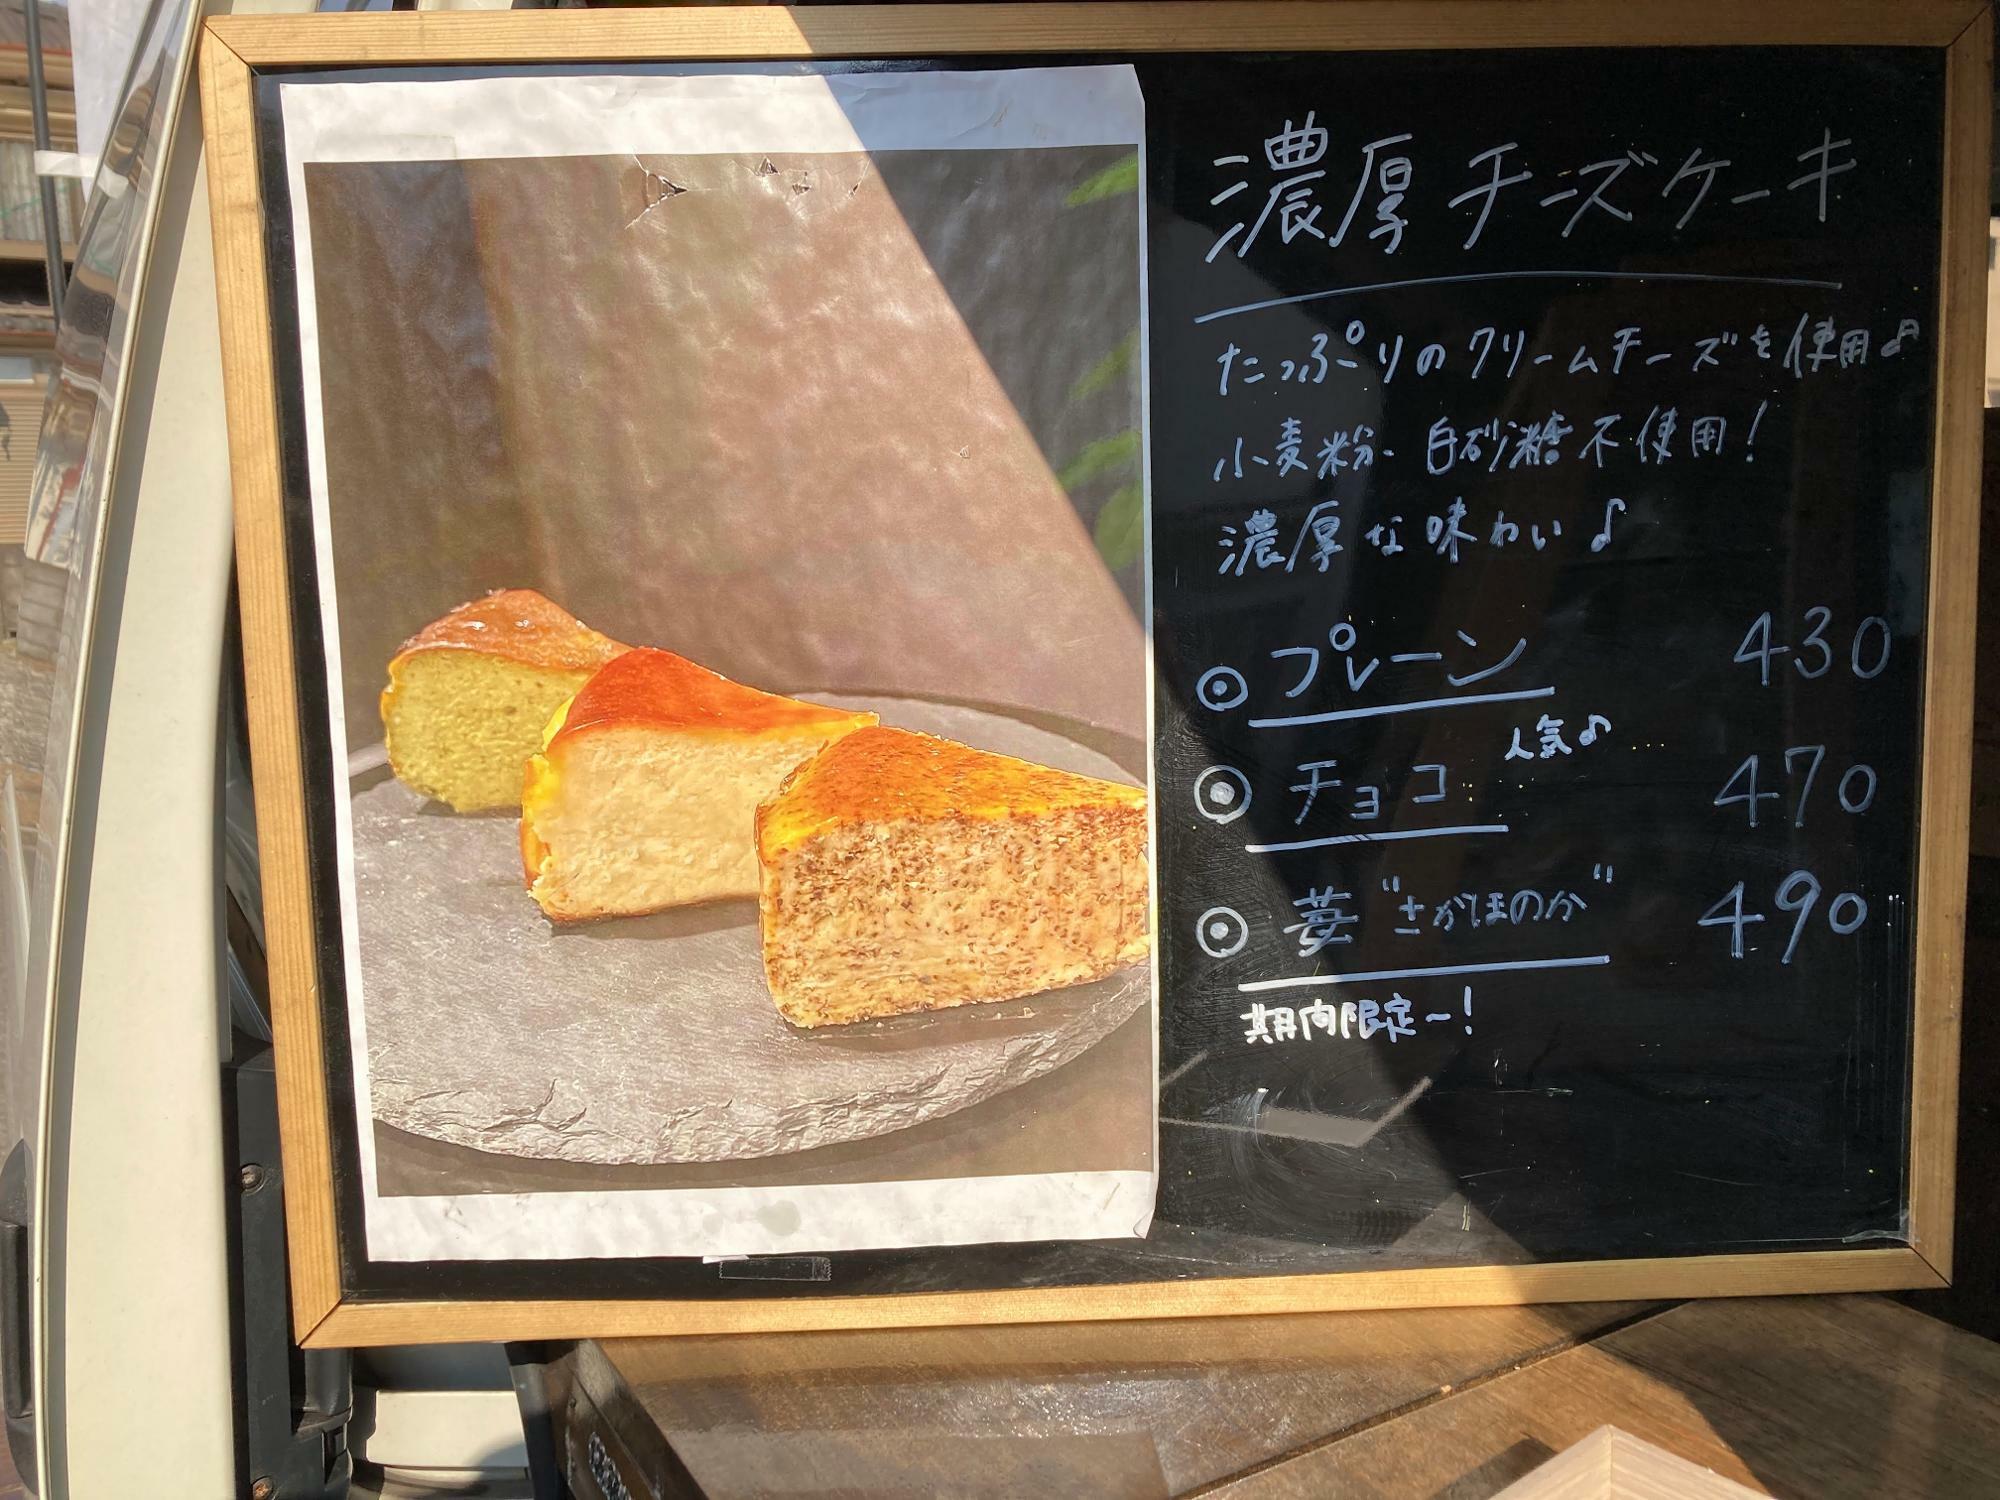 濃厚チーズケーキ
たっぷりのクリームチーズを使用♪
小麦粉・白砂糖不使用!
濃厚な味わい♪
◎プレーン 430
人気♪
◎チョコ 470
◎苺"さがほのか" 490
期間限定~!